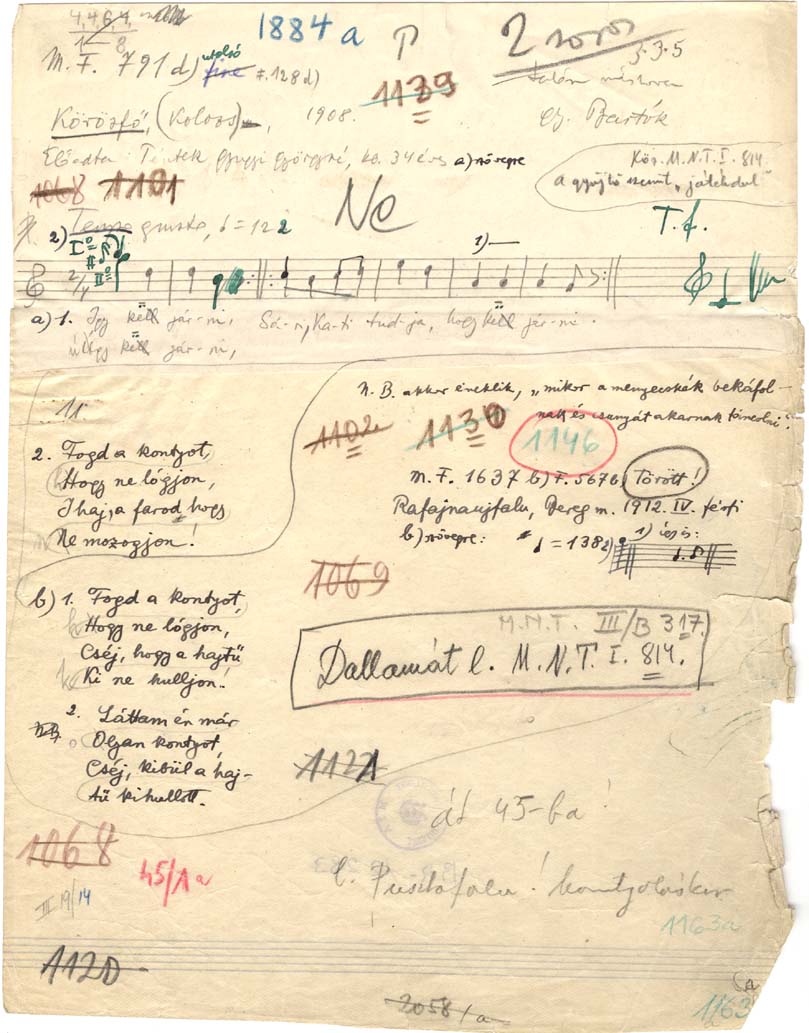 4, 4, 6, 4,
1 8
1884 a P 2 soros
3.3.5
M. F. 791 d) utolsó F. 128 d)
1139
talán máshova
Körösfő, (Kolozs), 1908. Gy. Bartók
Előadta: Péntek Gyugyi Györgyné, kb. 34 éves a) szövegre
Köz. M.N.T. I. 814.
a gyüjtő szerint „játékdal"
1068 1101
Ne
Tempo giusto, ♩ = 122
T. f.
2)
I°
II°
1)
2/4
a) 1. Így kell jár-ni, Sá-ri, Ka-ti tud-ja, hogy kell jár-ni.
úgy kell jár-ni,
N.B. akkor éneklik, „mikor a menyecskék bekáfol-
nak és csunyát akarnak táncolni".
11
1102 1130
1146
2. Fogd a kontyot,
Hogy ne lógjon,
Ihaj, a farod hogy
Ne mozogjon!
M. F. 1637 b) F. 567 b) Törött!
Rafajnaujfalu, Bereg m. 1912. IV. férfi
b) szövegre: ♩ = 138 2) 1) és:
1069
b) 1. Fogd a kontyot,
Hogy ne lógjon,
Cséj, hogy a hajtű
Ki ne hulljon!
M.N.T. III/B 317.
Dallamát l. M.N.T. I. 814.
2. Láttam én már
Olyan kontyot,
Cséj, kibül a haj-
tű kihullott.
1121
át 45-ba!
1068
45/1a
l. Pusztafalu! kontyoláskor
III 19/14
1163a
1120
2058/a
1163